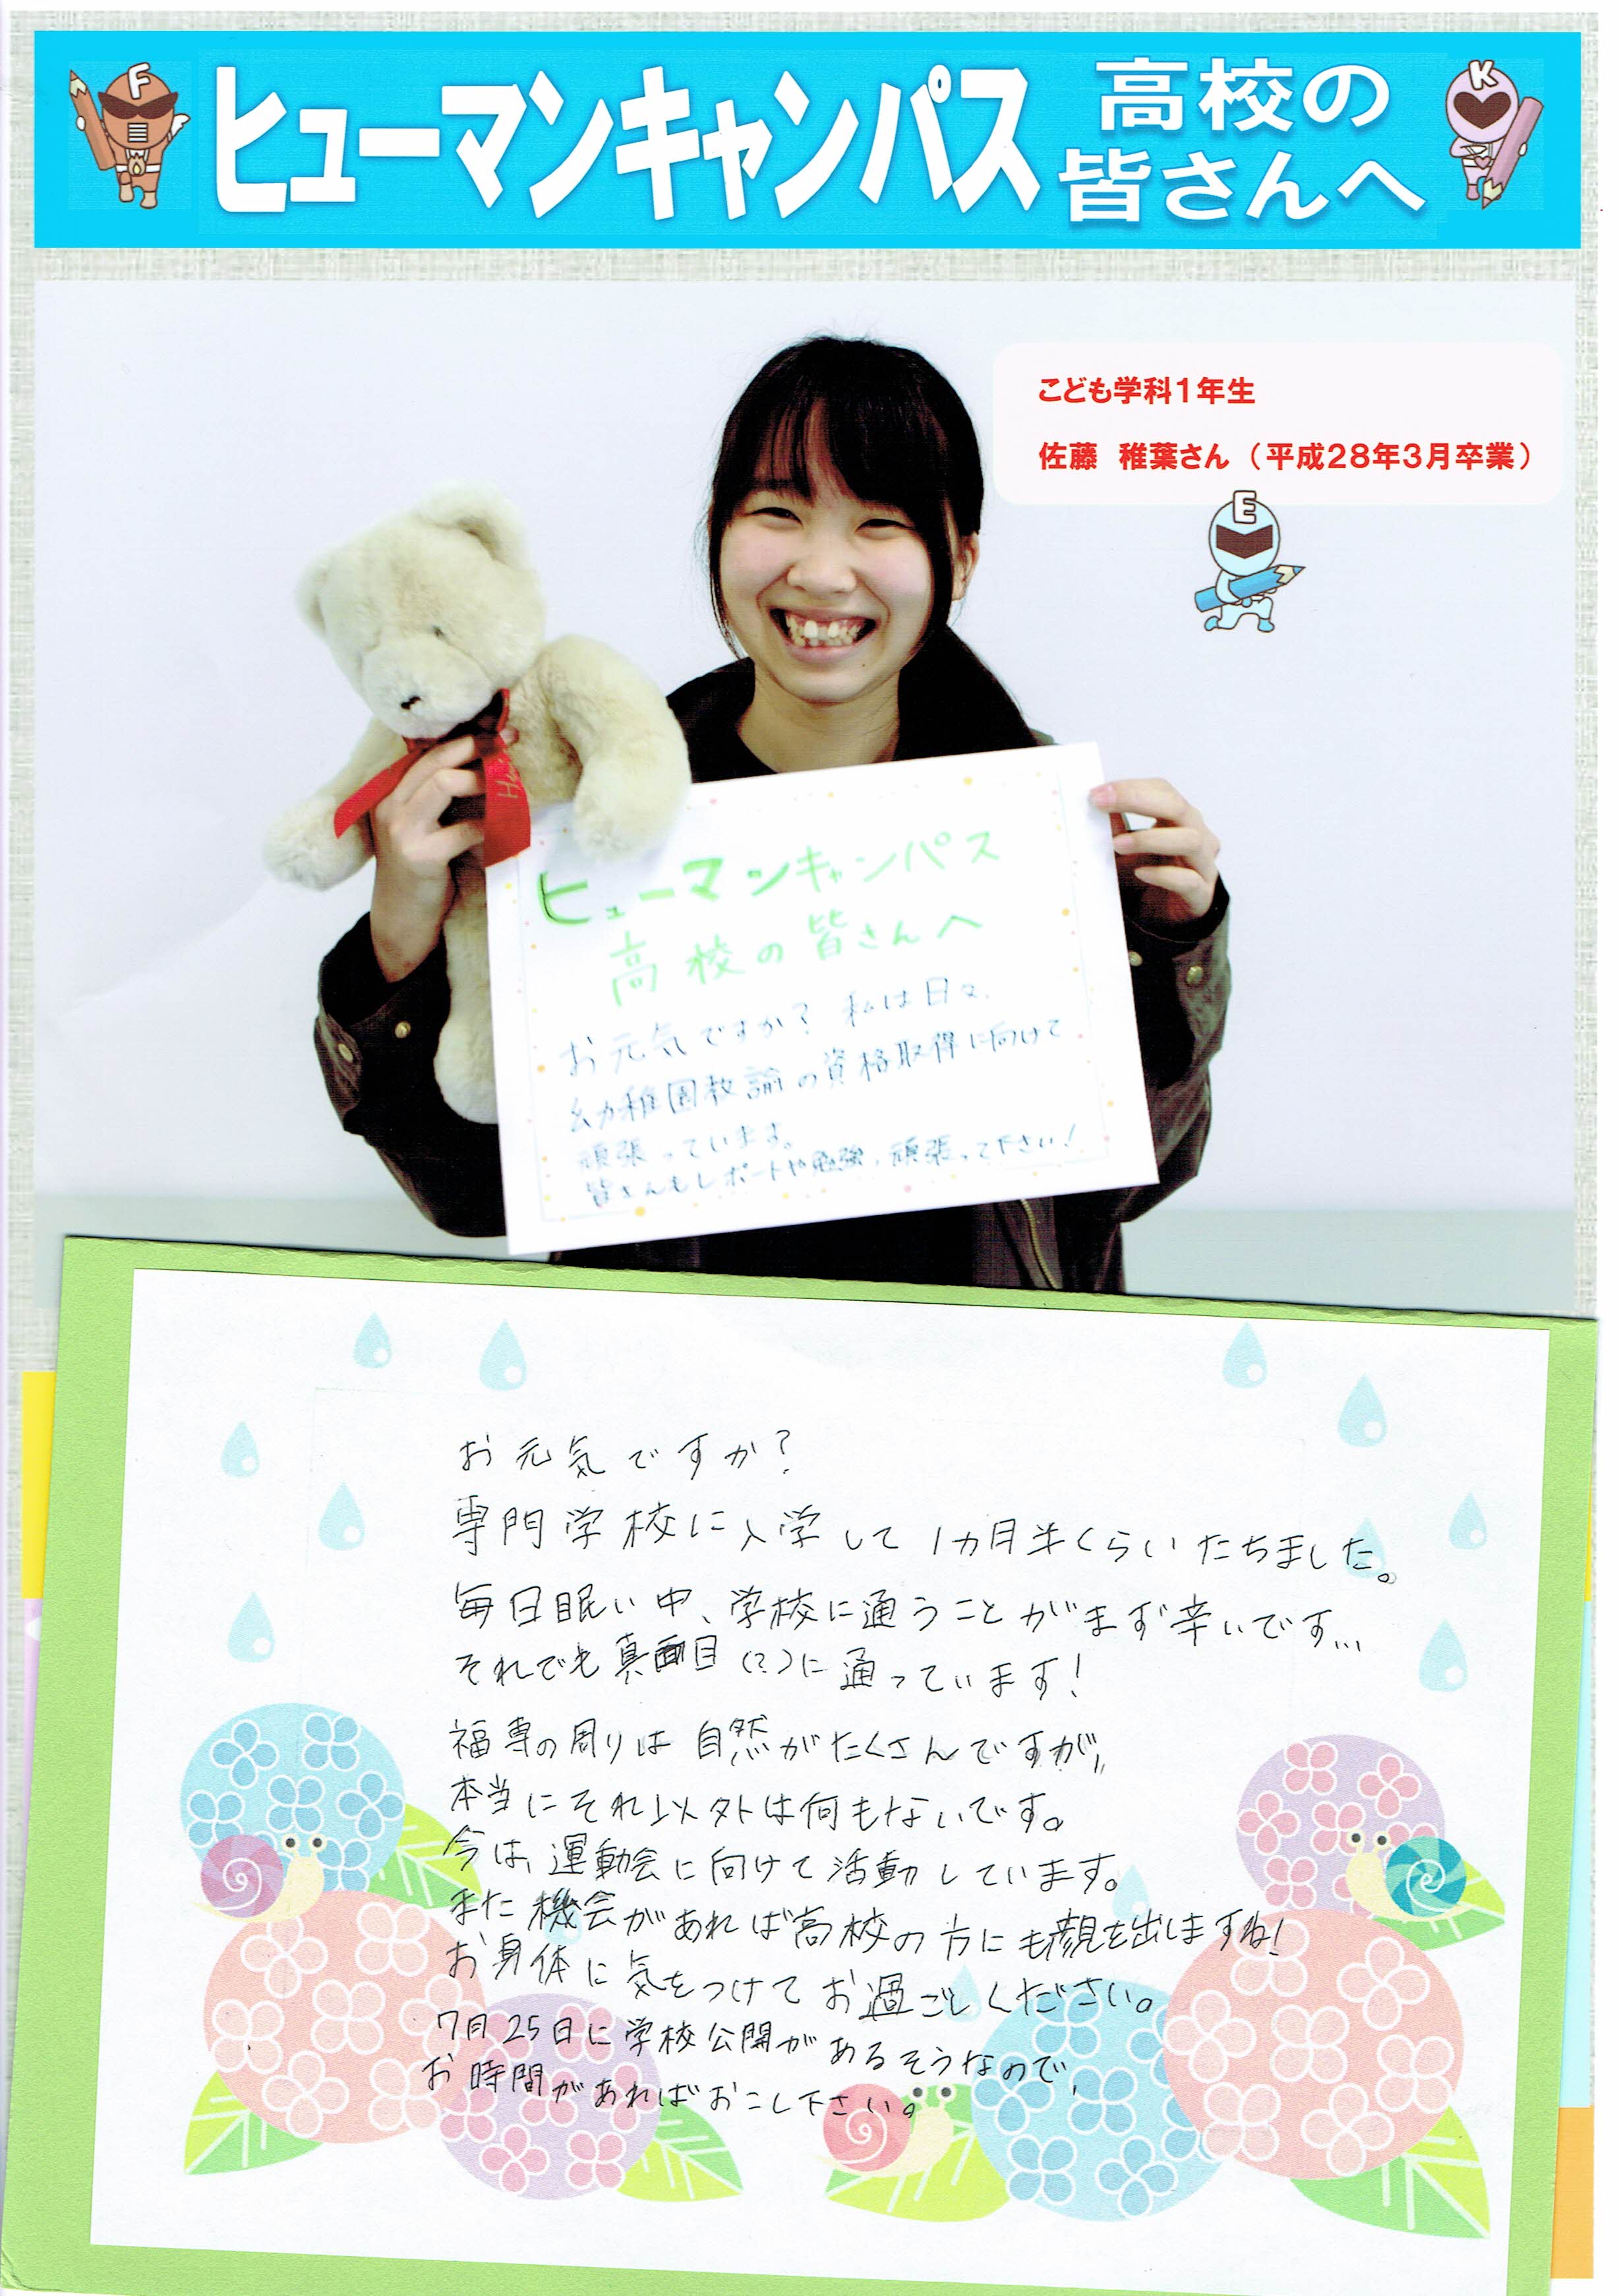 F
ヒューマンキャンパス
高校の
皆さんへ
K
こども学科1年生
佐藤 稚葉さん(平成28年3月卒業)
E
ヒューマンキャンパス
高校の皆さんへ
お元気ですか? 私は日々、
幼稚園教諭の資格取得に向けて
頑張っています。
皆さんもレポートや勉強、頑張って下さい!
お元気ですか?
専門学校に入学して1ヵ月半くらいたちました。
毎日眠い中、学校に通うことがまず辛いです…
それでも真面目(?)に通っています!
福専の周りは自然がたくさんですが、
本当にそれ以外は何もないです。
今は、運動会に向けて活動しています。
また機会があれば高校の方にも顔を出しますね!
お身体に気をつけてお過ごしください。
7月25日に学校公開があるそうなので、
お時間があればおこし下さい。